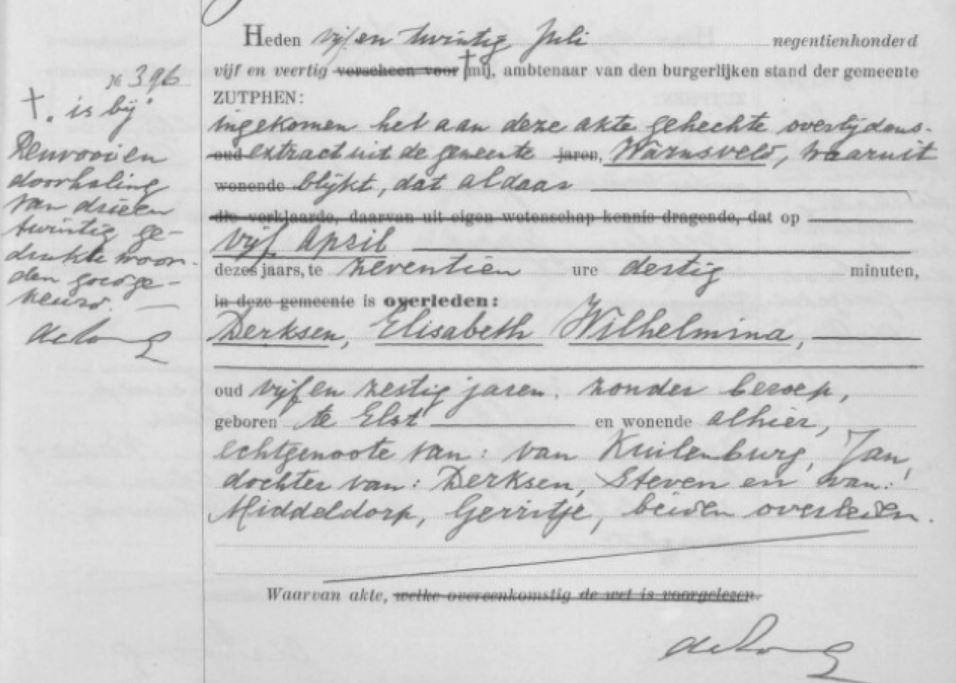 Heden vijf en twintig Juli negentienhonderd
vijf en veertig verscheen voor † mij, ambtenaar van den burgerlijken stand der gemeente
ZUTPHEN:
ingekomen het aan deze akte gehechte overlijdens-
oud extract uit de gemeente jaren, Warnsveld, waaruit
wonende blijkt, dat aldaar
die verklaarde, daarvan uit eigen wetenschap kennis dragende, dat op
vijf April
dezes jaars, te zeventien ure dertig minuten,
in deze gemeente is overleden:
Derksen, Elisabeth Wilhelmina,
oud vijf en zestig jaren. zonder beroep,
geboren te Elst en wonende alhier,
echtgenoote van: van Kuilenburg, Jan,
dochter van: Derksen, Steven en van:
Middeldorp, Gerritje, beiden overleden.
Waarvan akte, welke overeenkomstig de wet is voorgelezen.
de Jong
№ 396
† „is bij"
Renvooi en
doorhaling
van drieën
twintig ge-
drukte woor-
den goedge-
keurd.
de Jong